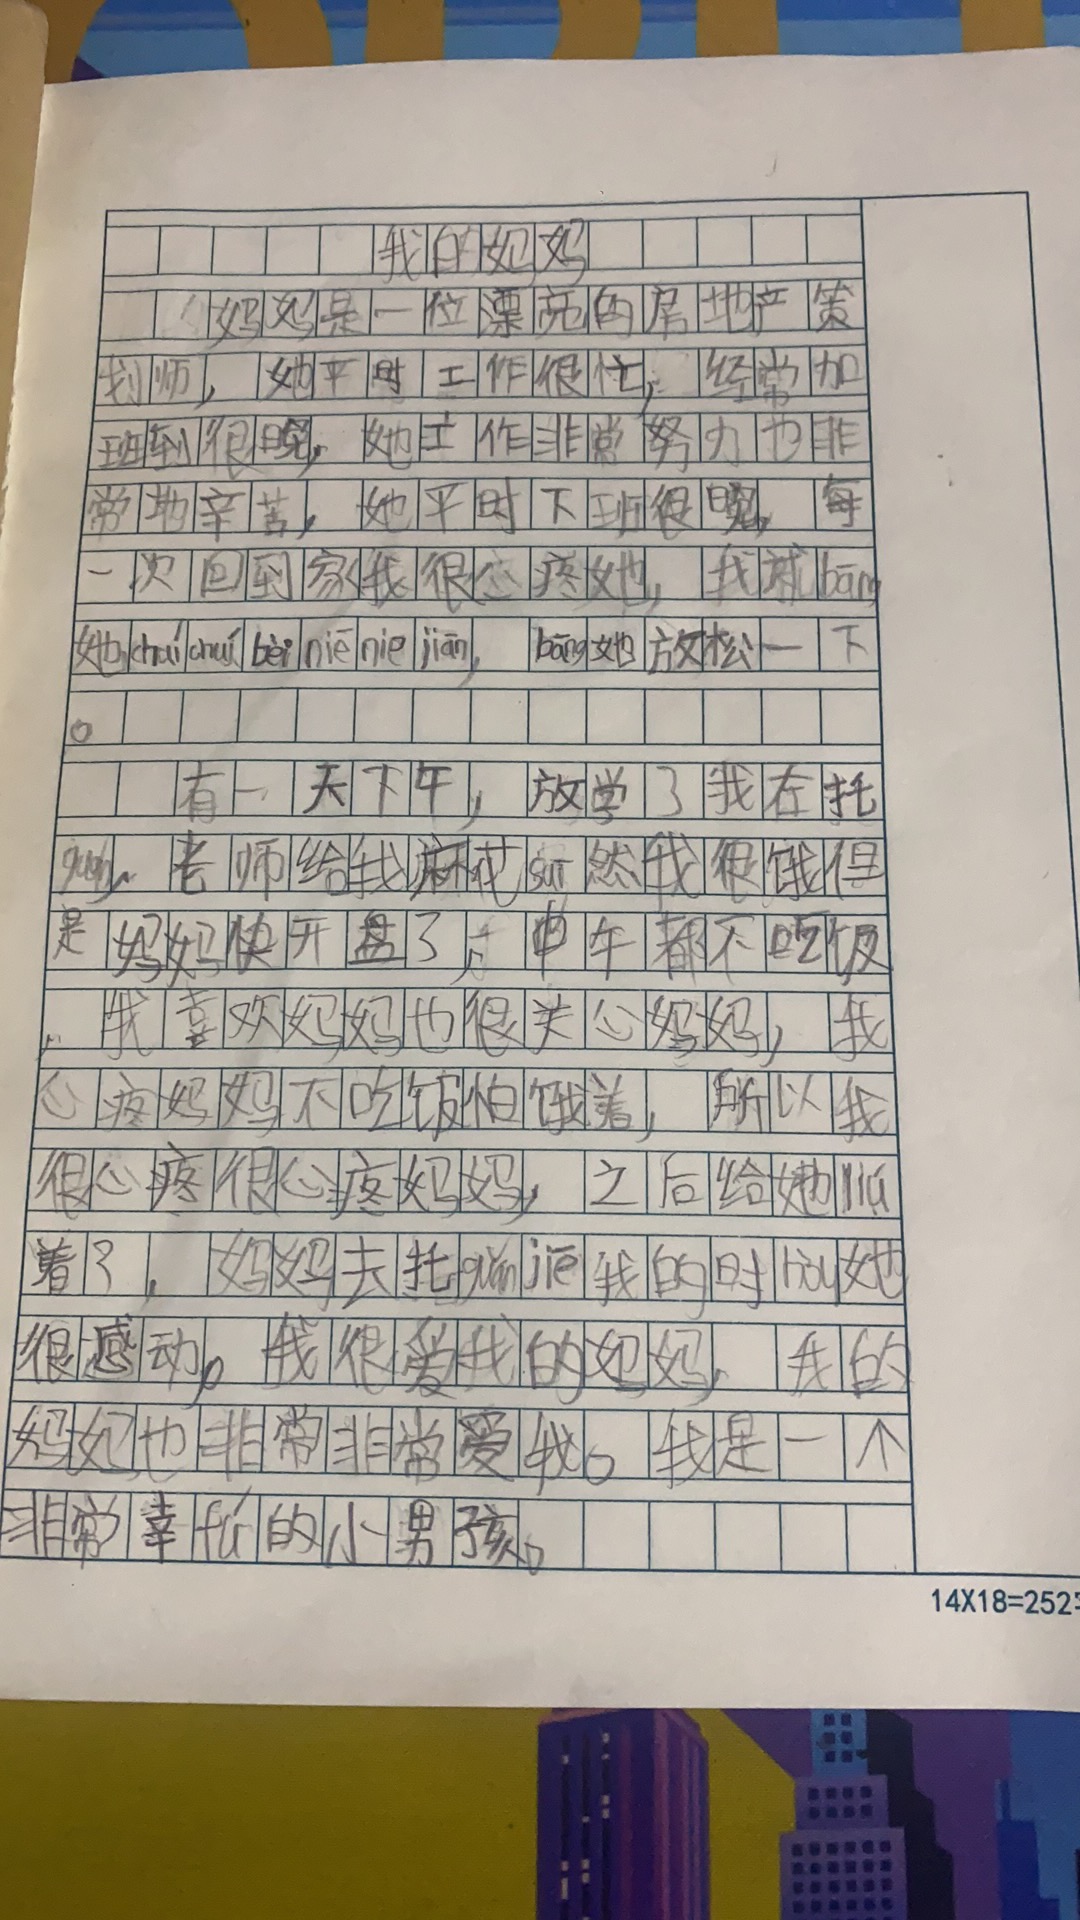 我的妈妈
妈妈是一位漂亮的房地产策
划师，她平时工作很忙，经常加
班到很晚，她工作非常努力也非
常地辛苦，她平时下班很晚，每
一次回到家我很心疼她，我就bāng
她chuí chuí bèi niē niē jiān，bāng她放松一下
。
有一天下午，放学了我在托
guǎn，老师给我麻花suī然我很饿但
是妈妈快开盘了，中午都不吃饭
，我喜欢妈妈也很关心妈妈，我
心疼妈妈不吃饭怕饿着，所以我
很心疼很心疼妈妈，之后给她liú
着了，妈妈去托guǎn jiē我的时hòu她
很感动。我很爱我的妈妈，我的
妈妈也非常非常爱我。我是一个
非常幸fú的小男孩。
14X18=252